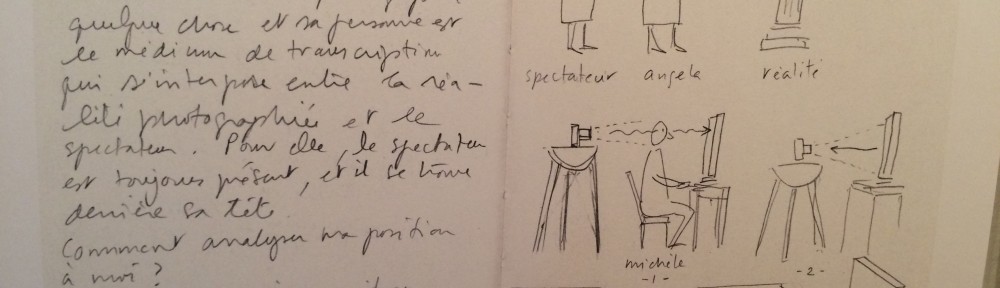 quelque chose et sa personne est
le médium de transcription
qui s'interpose entre la réa-
lité photographiée et le
spectateur. Pour elle, le spectateur
est toujours présent, et il se trouve
derrière sa tête.
Comment analyser ma position
à moi ?
spectateur angela réalité
michèle
-1- -2-